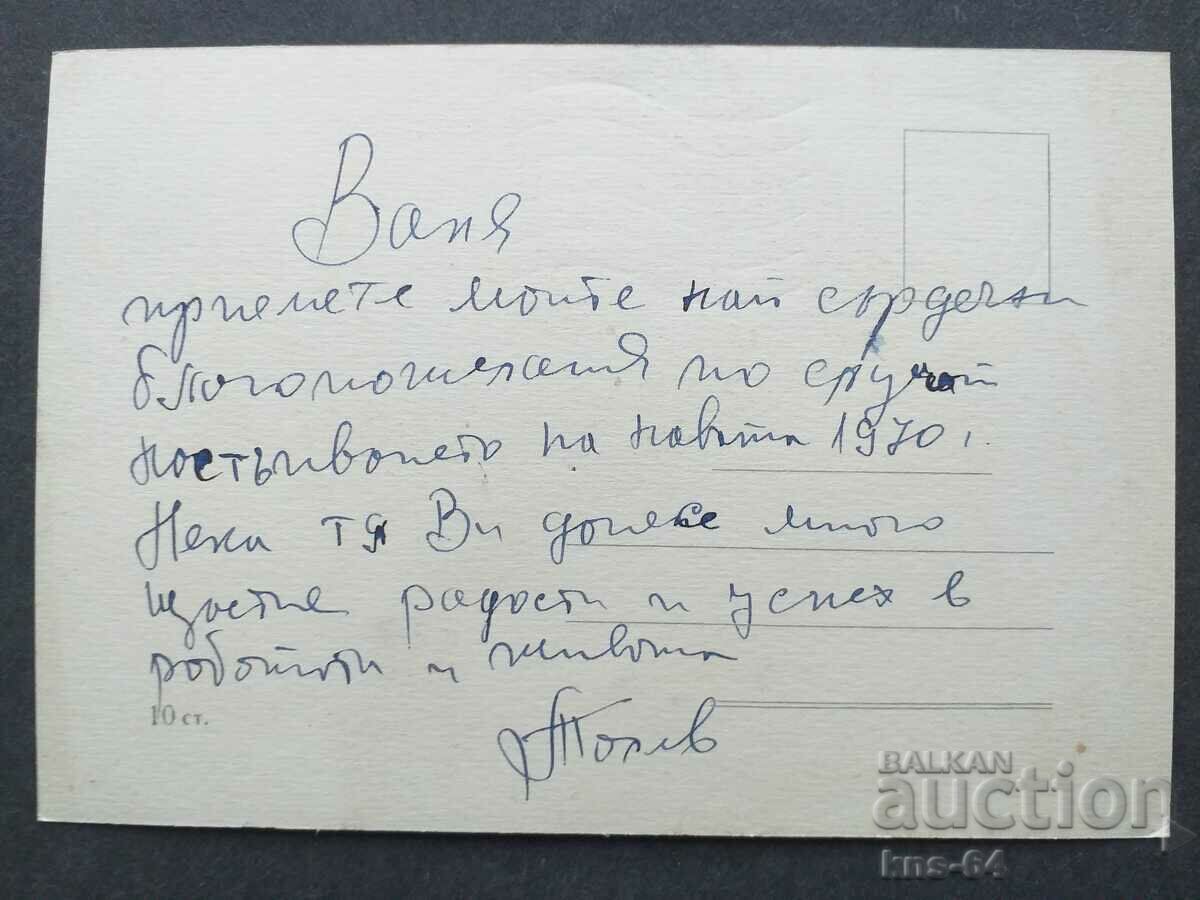 Ваня
приемете моите най сърдечни
благопожелания по случай
настъпването на новата 1970 г.
Нека тя Ви донесе много
щастие радости и успех в
работата и живота
10 ст.
BALKAN
auction
kns-64